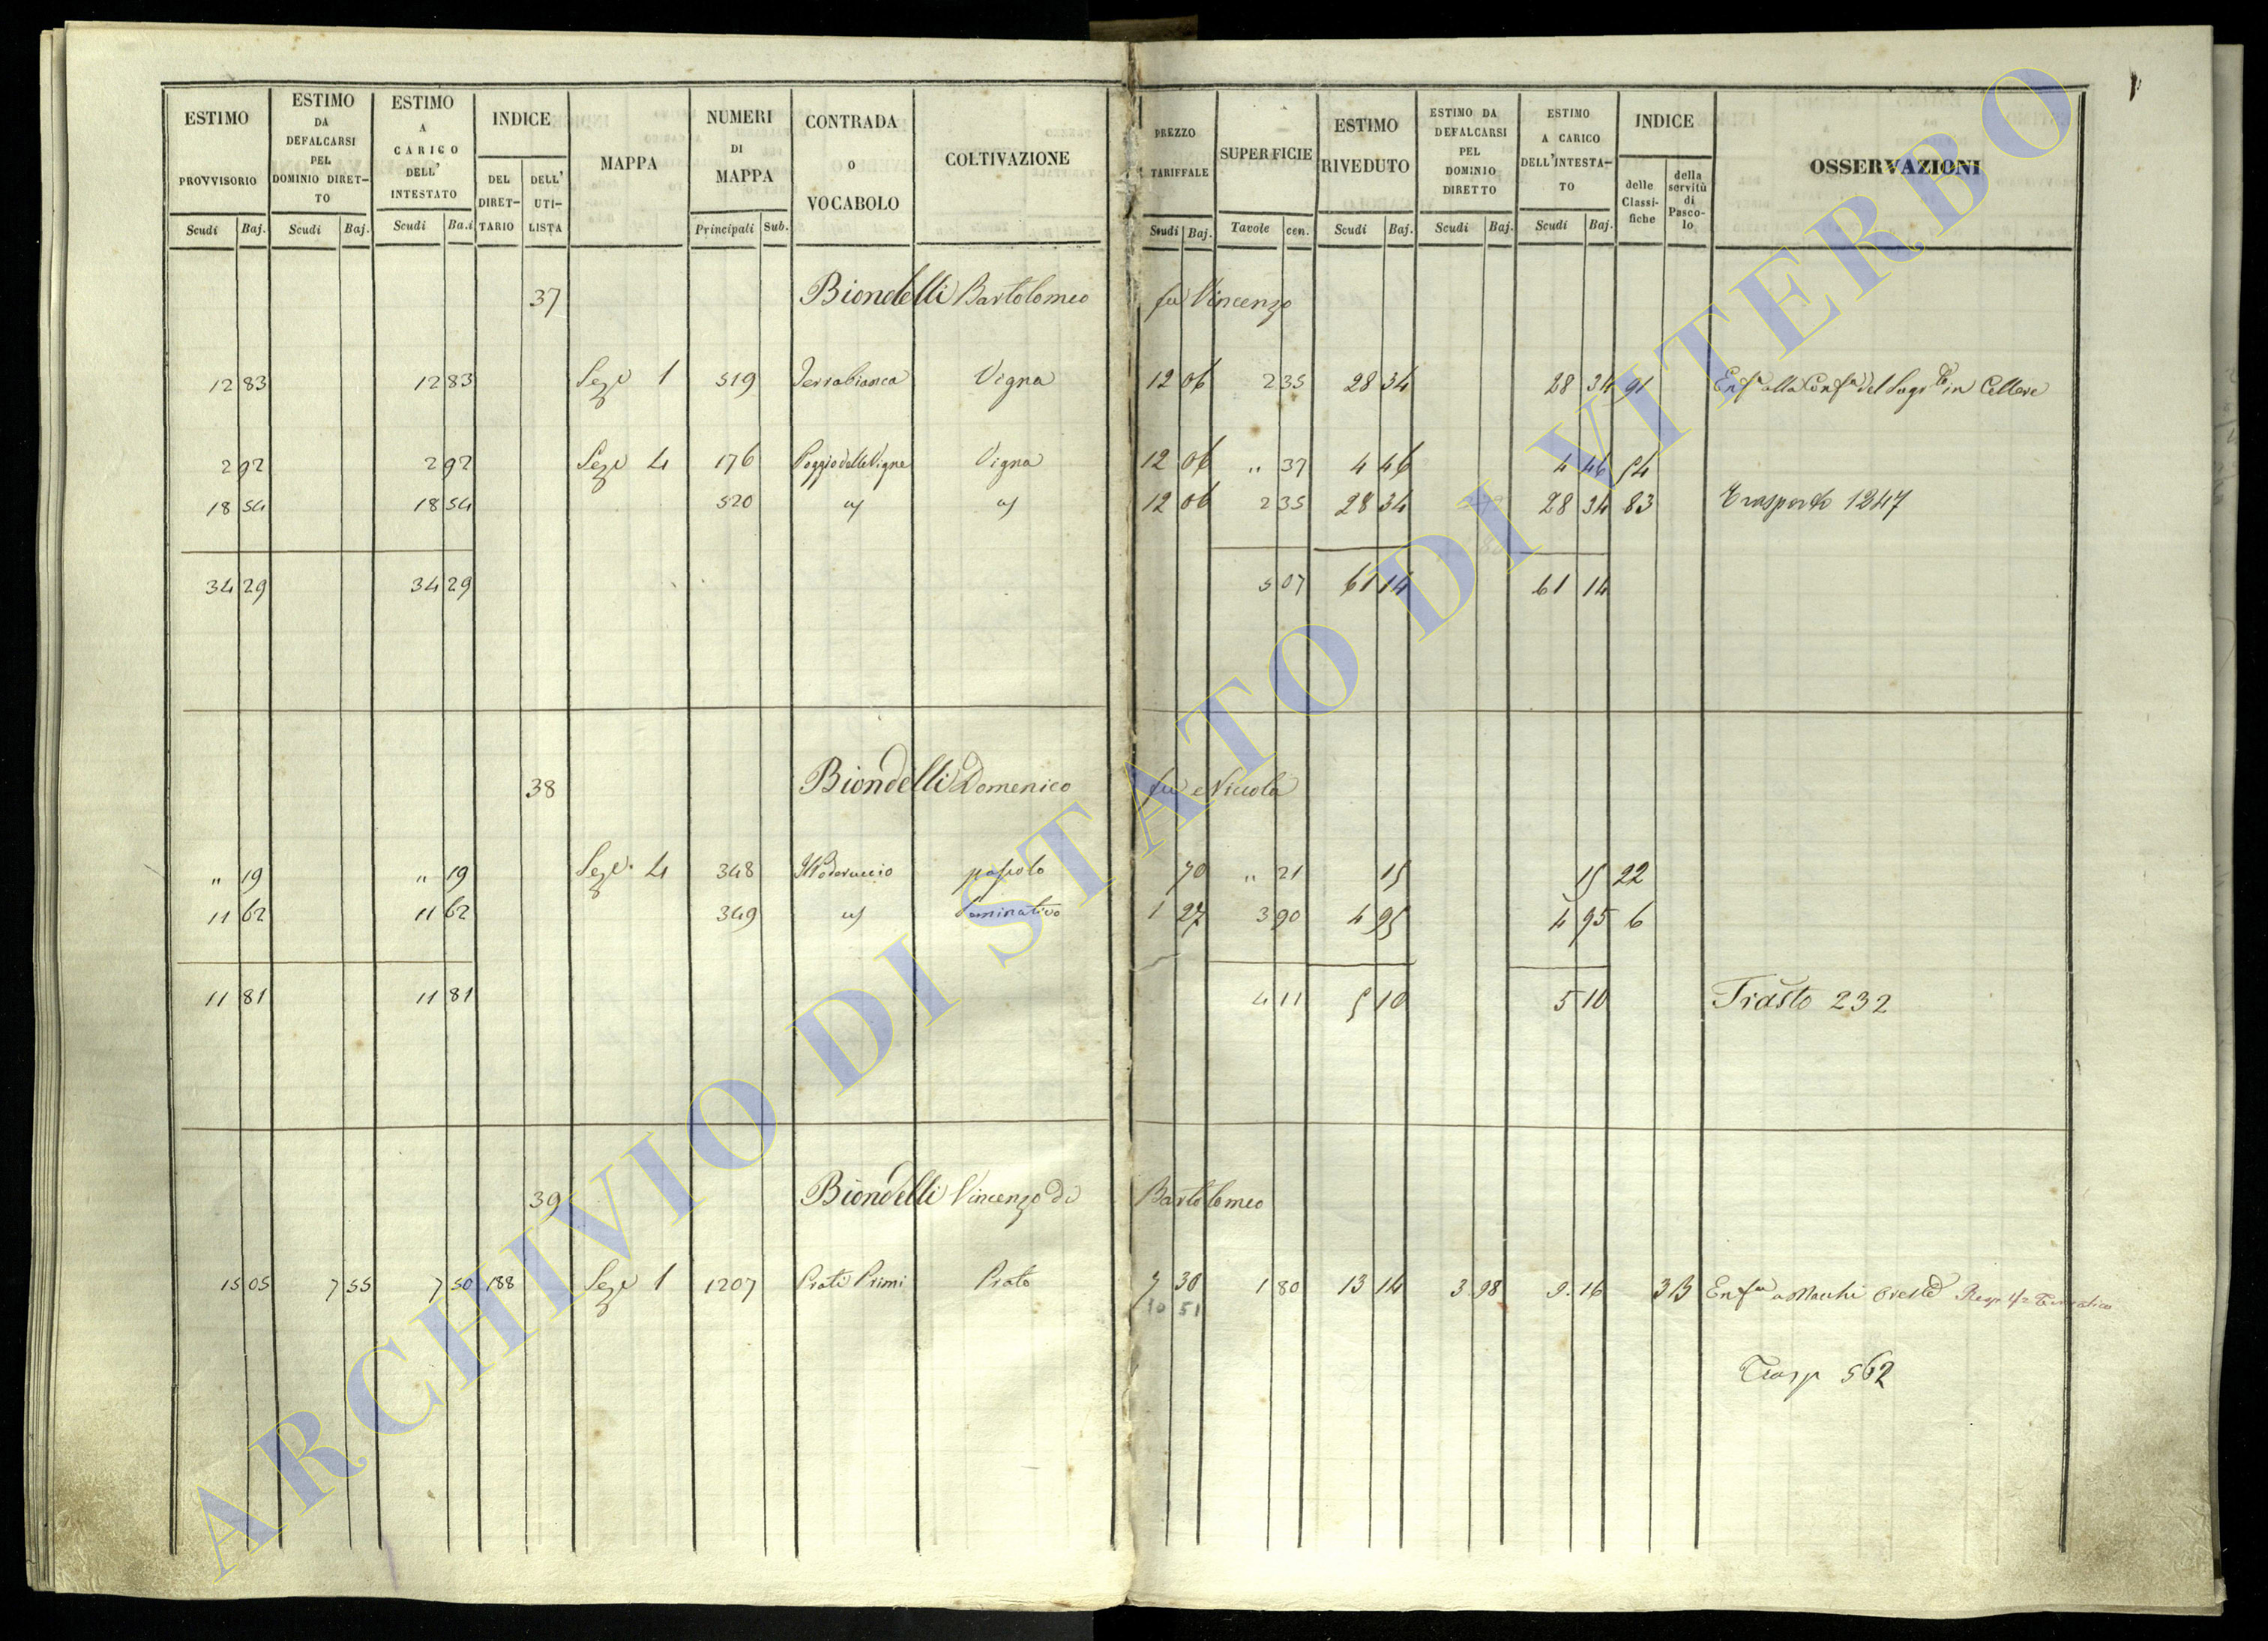 ESTIMO PROVVISORIO Scudi Baj.
ESTIMO DA DEFALCARSI PEL DOMINIO DIRET-TO Scudi Baj.
ESTIMO A CARICO DELL' INTESTATO Scudi Ba.i
INDICE DEL DIRET-TARIO DELL' UTI-LISTA
MAPPA
NUMERI DI MAPPA Principali Sub.
CONTRADA o VOCABOLO
COLTIVAZIONE
PREZZO TARIFFALE Scudi Baj.
SUPERFICIE Tavole cen.
ESTIMO RIVEDUTO Scudi Baj.
ESTIMO DA DEFALCARSI PEL DOMINIO DIRETTO Scudi Baj.
ESTIMO A CARICO DELL'INTESTA-TO Scudi Baj.
INDICE delle Classi-fiche della servitù di Pasco-lo
OSSERVAZIONI
37 Biondelli Bartolomeo fu Vincenzo
12 83 12 83 Sezе 1 519 Terrabianca Vigna 12 06 2 35 28 34 28 34 91 Enfa alla Confa del Sagr in Cellere
2 92 2 92 Seze 4 176 Poggio delle Vigne Vigna 12 06 " 37 4 46 4 46 54
18 54 18 54 520 12 06 2 35 28 34 28 34 83 Trasporto 1247
34 29 34 29 5 07 61 14 61 14
38 Biondelli Domenico fu Niccola
" 19 " 19 Seze 4 348 pascolo 70 " 21 15 15 22
11 62 11 62 349 Seminativo 1 27 3 90 4 95 4 95 6
11 81 11 81 4 11 5 10 5 10 Trasto 232
39 Biondelli Vincenzo di Bartolomeo
15 05 7 55 7 50 188 Seze 1 1207 Prati Primi Prato 7 30 1 80 13 14 3 98 9.16 3 Enfa a Macchi Oreste
10 51
Trasp 562
ARCHIVIO DI STATO DI VITERBO